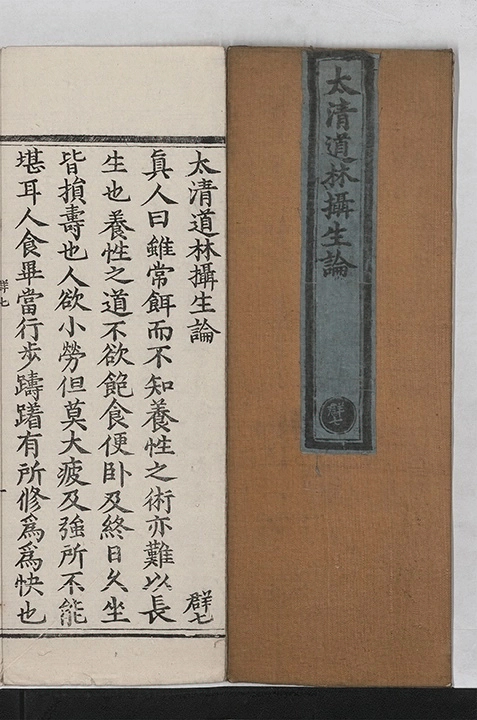 太清道林攝生論
群七
太清道林攝生論
群七
真人曰雖常餌而不知養性之術亦難以長
生也養性之道不欲飽食便卧及終日久坐
皆損壽也人欲小勞但莫大疲及強所不能
堪耳人食畢當行步躊躇有所修為為快也
群七